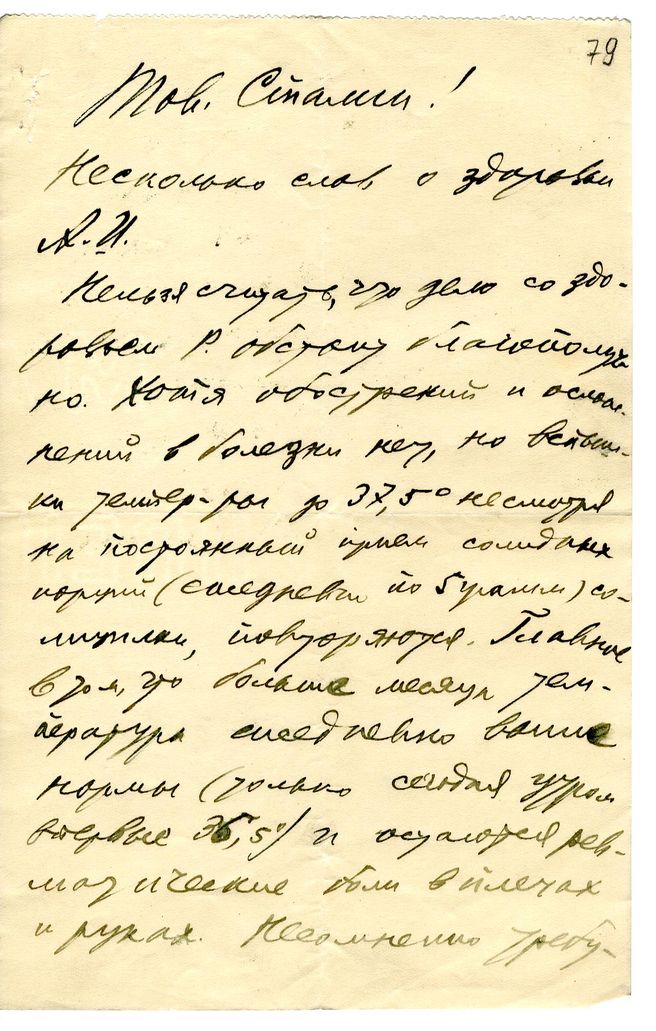 79
Тов. Сталин!
Несколько слов о здоровьи
А. И.
Нельзя считать, что дело со здо-
ровьем Р. обстоит благополуч
но. Хотя обострений и ослож-
нений в болезни нет, но вспыш-
ки темпер-ры до 37,5° несмотря
на постоянный прием солидных
порций (ежедневно по 5 грамм) са-
лицилки, повторяются. Главное
в том, что больше месяца тем-
пература ежедневно выше
нормы (только сегодня утром
впервые 36,5°) и остаются рев-
матические боли в плечах
и руках. Несомненно требу-